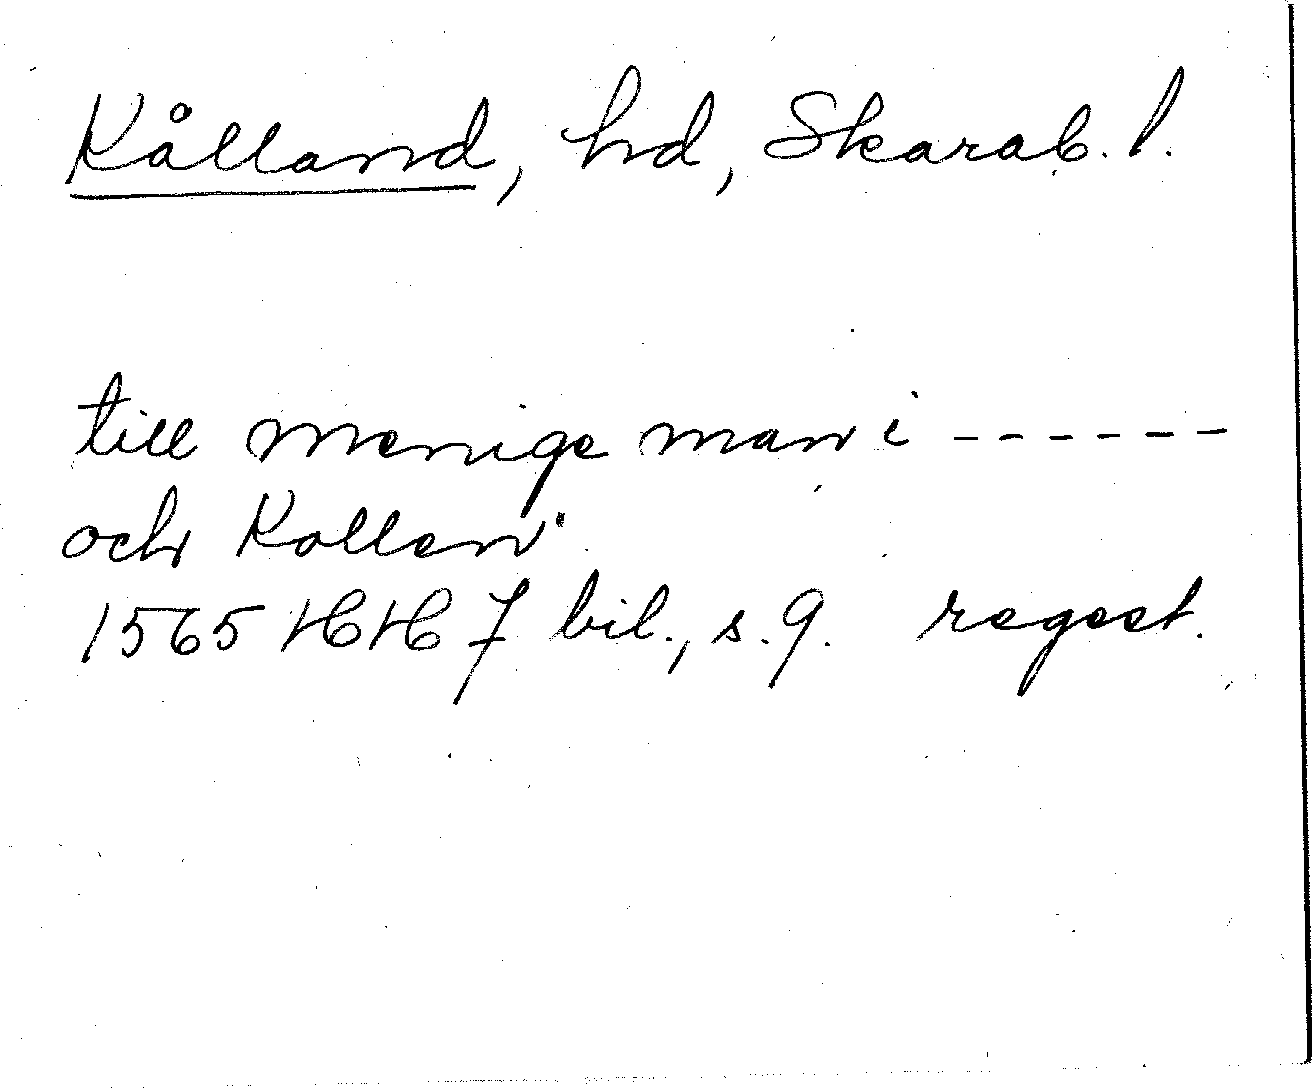 Kålland, hd, Skarab. l.
till menige man i ------
och Kollen
1565 HH 7 bil., s. 9. regest.